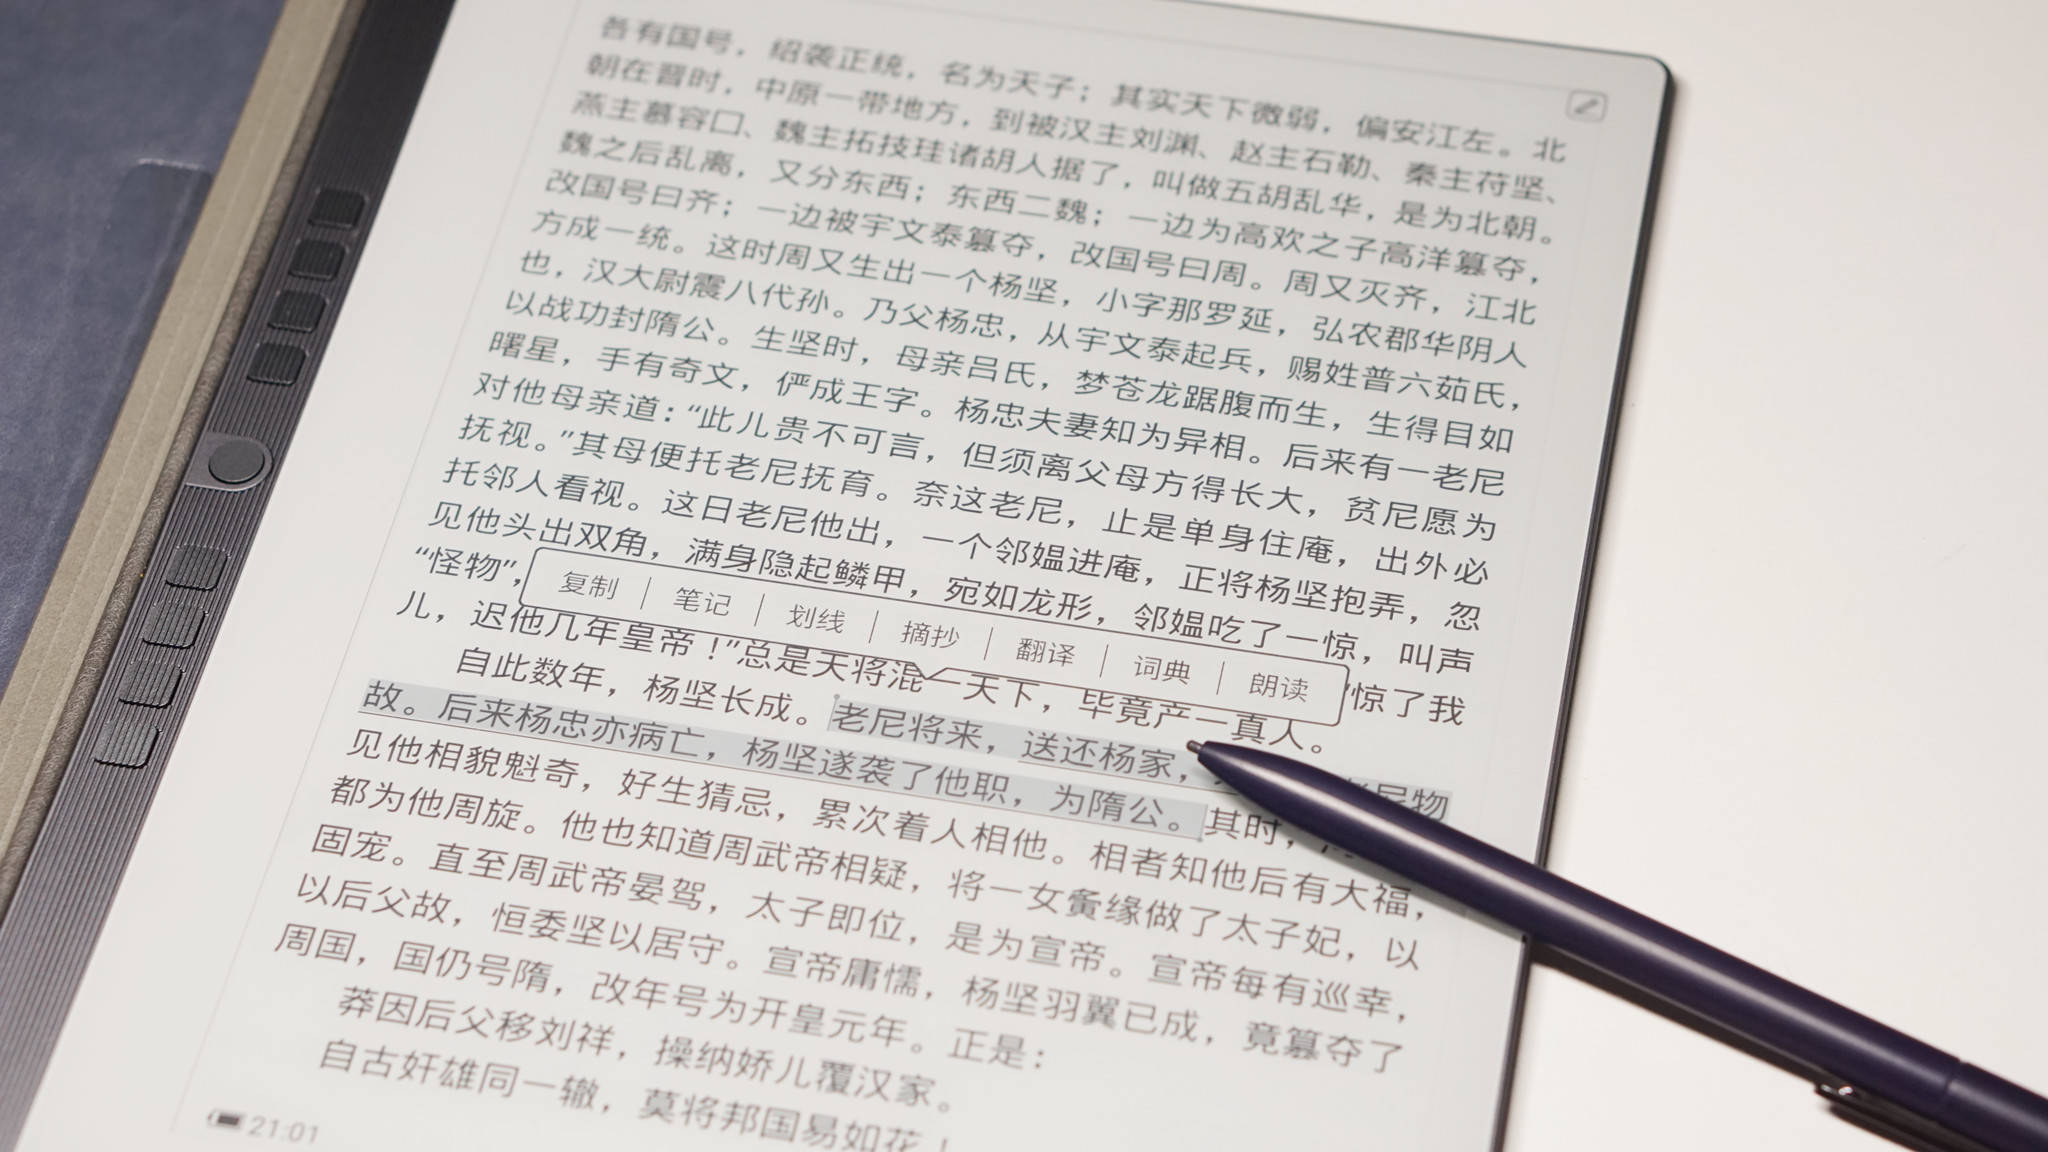 各有国号，绍袭正统，名为天子；其实天下微弱，偏安江左。北
朝在晋时，中原一带地方，到被汉主刘渊、赵主石勒、秦主苻坚、
燕主慕容囗、魏主拓技珪诸胡人据了，叫做五胡乱华，是为北朝。
魏之后乱离，又分东西；东西二魏；一边为高欢之子高洋篡夺，
改国号曰齐；一边被宇文泰篡夺，改国号曰周。周又灭齐，江北
方成一统。这时周又生出一个杨坚，小字那罗延，弘农郡华阴人
也，汉大尉震八代孙。乃父杨忠，从宇文泰起兵，赐姓普六茹氏，
以战功封隋公。生坚时，母亲吕氏，梦苍龙踞腹而生，生得目如
曙星，手有奇文，俨成王字。杨忠夫妻知为异相。后来有一老尼
对他母亲道：“此儿贵不可言，但须离父母方得长大，贫尼愿为
抚视。”其母便托老尼抚育。奈这老尼，止是单身住庵，出外必
托邻人看视。这日老尼他出，一个邻媪进庵，正将杨坚抱弄，忽
见他头出双角，满身隐起鳞甲，宛如龙形，邻媪吃了一惊，叫声
“怪物”， 惊了我
复制 笔记 划线 摘抄 翻译 词典 朗读
儿，迟他几年皇帝！”总是天将混一天下，毕竟产一真人。
自此数年，杨坚长成。老尼将来，送还杨家， 老尼物
故。后来杨忠亦病亡，杨坚遂袭了他职，为隋公。其时，
见他相貌魁奇，好生猜忌，累次着人相他。相者知他后有大福，
都为他周旋。他也知道周武帝相疑，将一女夤缘做了太子妃，以
固宠。直至周武帝晏驾，太子即位，是为宣帝。宣帝每有巡幸，
以后父故，恒委坚以居守。宣帝庸懦，杨坚羽翼已成，竟篡夺了
周国，国仍号隋，改年号为开皇元年。正是：
莽因后父移刘祥，操纳娇儿覆汉家。
自古奸雄同一辙，莫将邦国易如花！
21:01